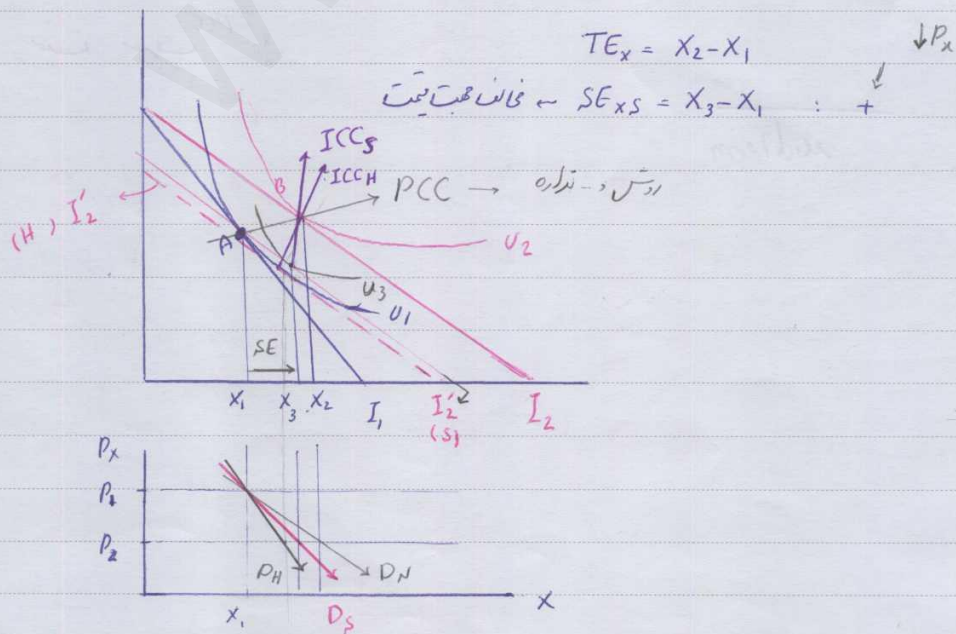 TEx = X2-X1
↓Px
مخالف جهت قیمت ← SExs = X3-X1 : +
ICCS
ICCH
B
PCC → روش
(H) I'2
A
U2
U3
U1
SE
X1 X3 X2 I1 I'2 I2
(S)
Px
P1
P2
DH DN
X1 DS X